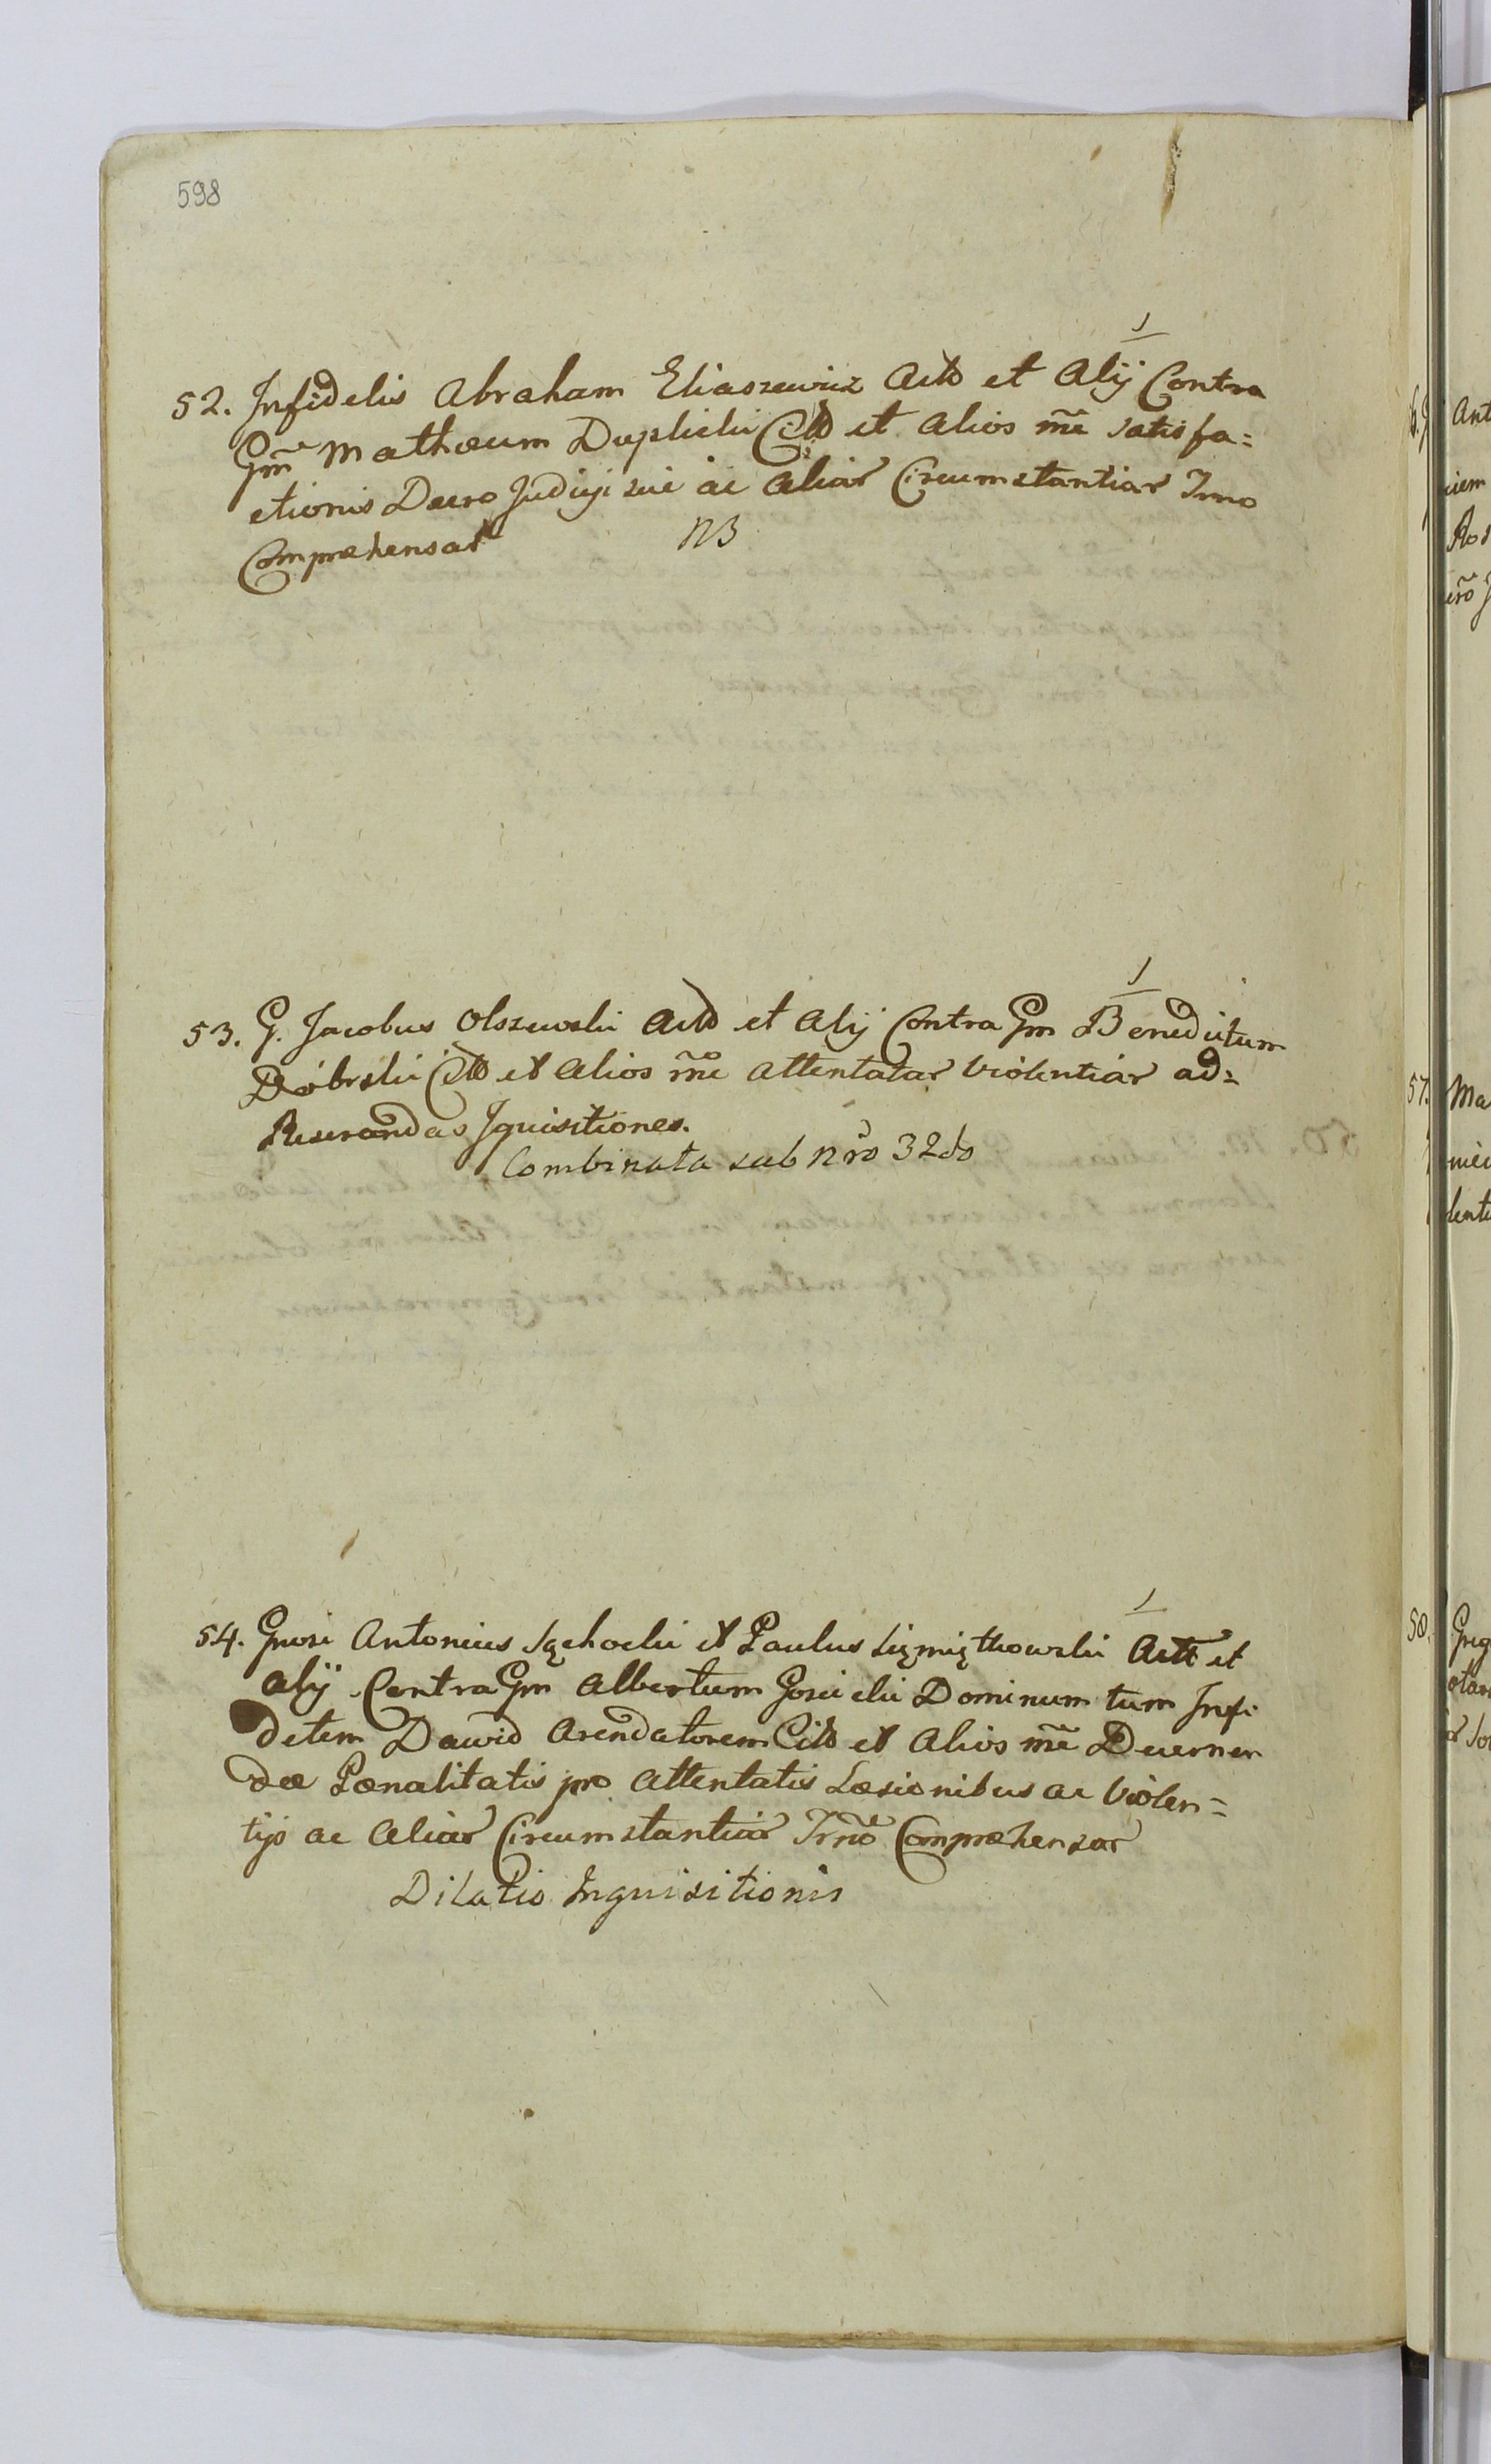 598
1
52. Infidelis Abraham Eliaszewicz Actō et Alij Contra
Gm̄ Mathæum Duplicki Citō et Alios rn̄e Satisfa=
ctionis Decro Judicÿ sui ac aliar Circumstantiar Trmo
Compræhensar NB
1
53. G. Jacobus Olszewski Actō et Alij Contra Gm Benedictum
Dóbrski Citō et Alios rn̄e Attentatar Violentiar ad=
Reserandas Iquisitiones.
Combinata sub Nrō 32do
1
54. Gnosi Antonius Sęchocki et Paulus Siemiątkowski Actt et
Alÿ Contra Gm Albertum Gosicki Dominum tum Infi
delem Dawid Arendatorem Citō et Alios rn̄e Decernen
dæ Pœnalitatis pro Attentatis Læsionibus ac Violen=
tÿs ac Aliar Circumstantiar Trm̄o Compræhensar
Dilatio Inquisitionis
57.
58.